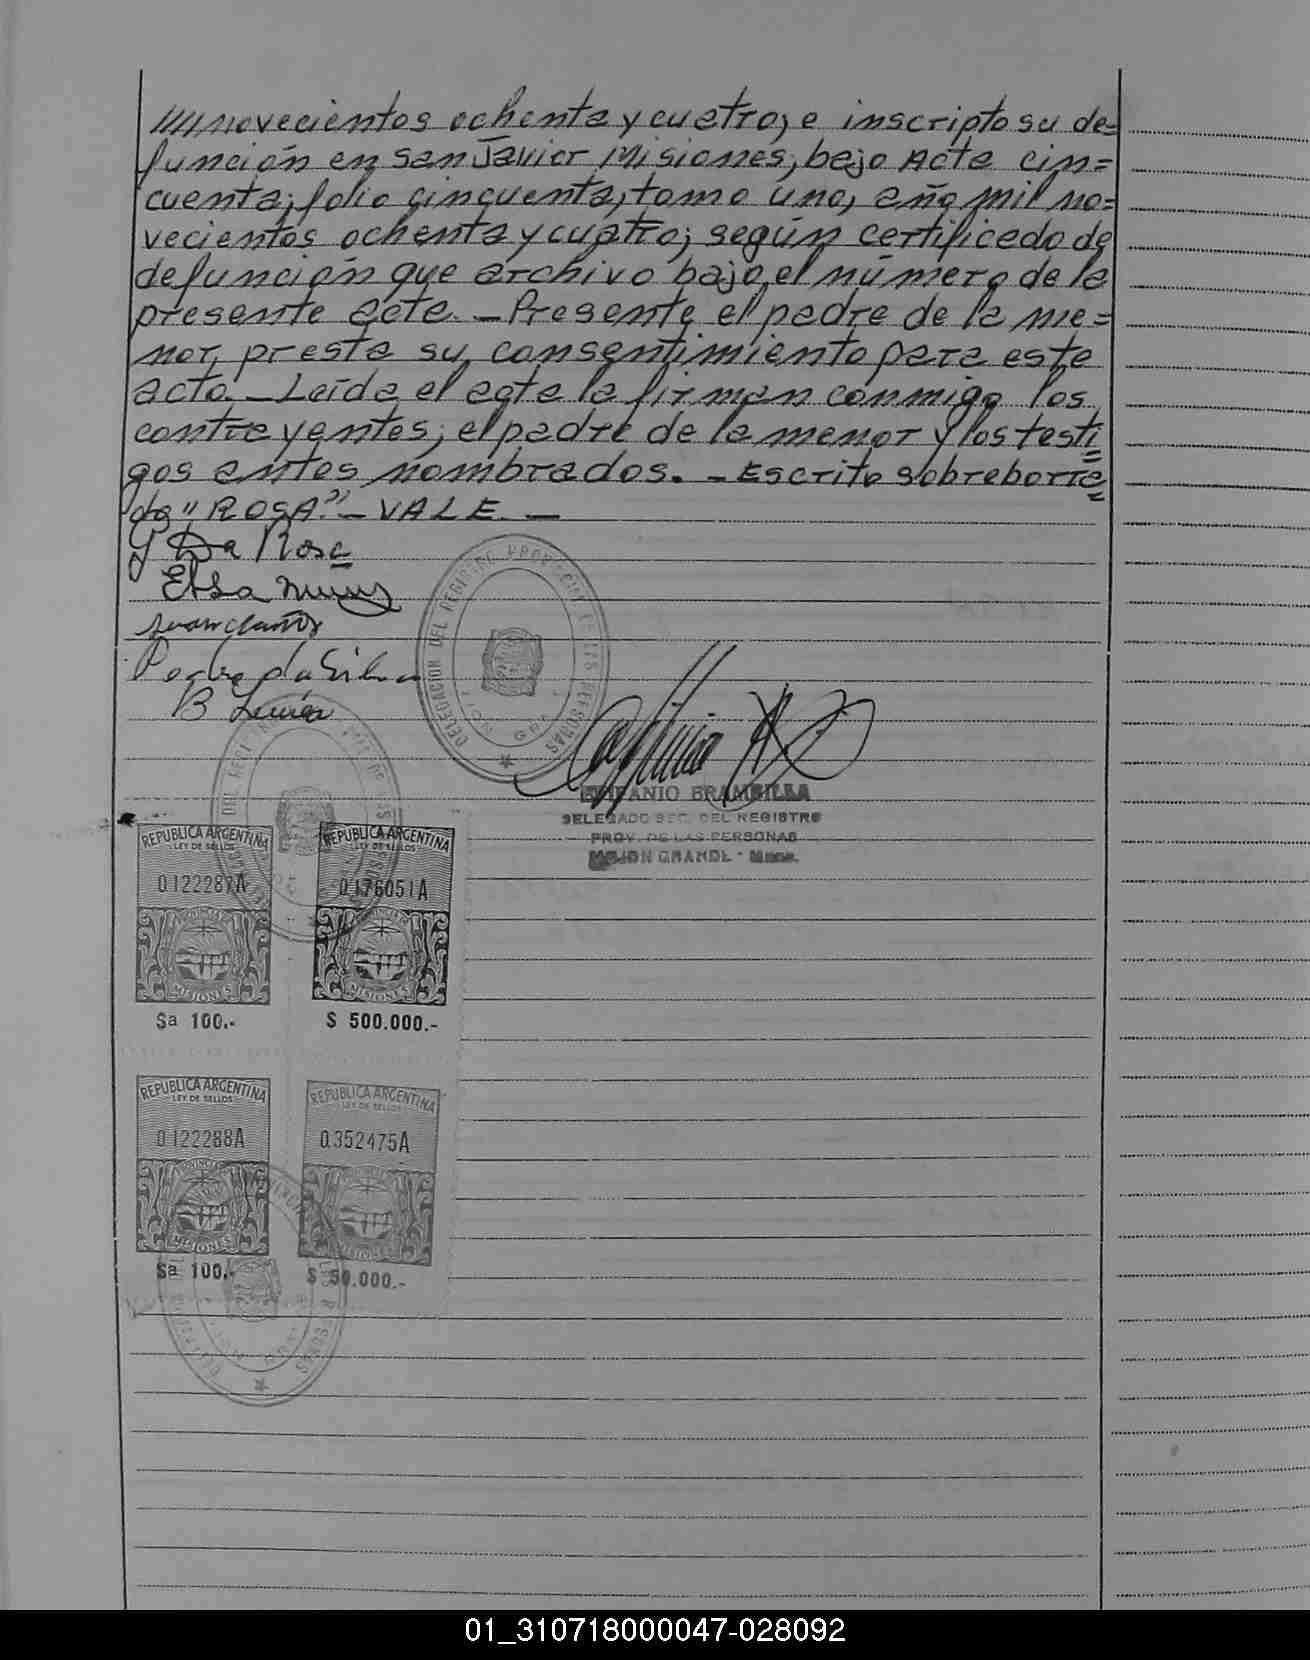 ////novecientos ochenta y cuatro, e inscripto su de=
función en San Javier Misiones, bajo Acta cin=
cuenta; folio cincuenta, tomo uno, año mil no=
vecientos ochenta y cuatro; según certificado de
defunción que archivo bajo el número de la
presente acta. — Presente el padre de la me=
nor, presta su consentimiento para este
acto. — Leída el acta la firman conmigo los
contrayentes, el padre de la menor y los testi=
gos antes nombrados. — Escrito sobreborra=
do "ROSA". — VALE. —
Da Rosa
Elsa
Pedro da Silva
B
DELEGACION DEL REGISTRO PROVINCIAL DE LAS PERSONAS
BRAMBILLA
DELEGADO SEC. DEL REGISTRO
PROV. DE LAS PERSONAS
MOJON GRANDE - Mnes.
REPUBLICA ARGENTINA
LEY DE SELLOS
0122287A
PROVINCIA
MISIONES
$a 100.-
REPUBLICA ARGENTINA
LEY DE SELLOS
0176051A
PROVINCIA
MISIONES
$ 500.000.-
REPUBLICA ARGENTINA
LEY DE SELLOS
0122288A
PROVINCIA
MISIONES
$a 100.-
REPUBLICA ARGENTINA
LEY DE SELLOS
0352475A
MISIONES
$ 50.000.-
01_310718000047-028092